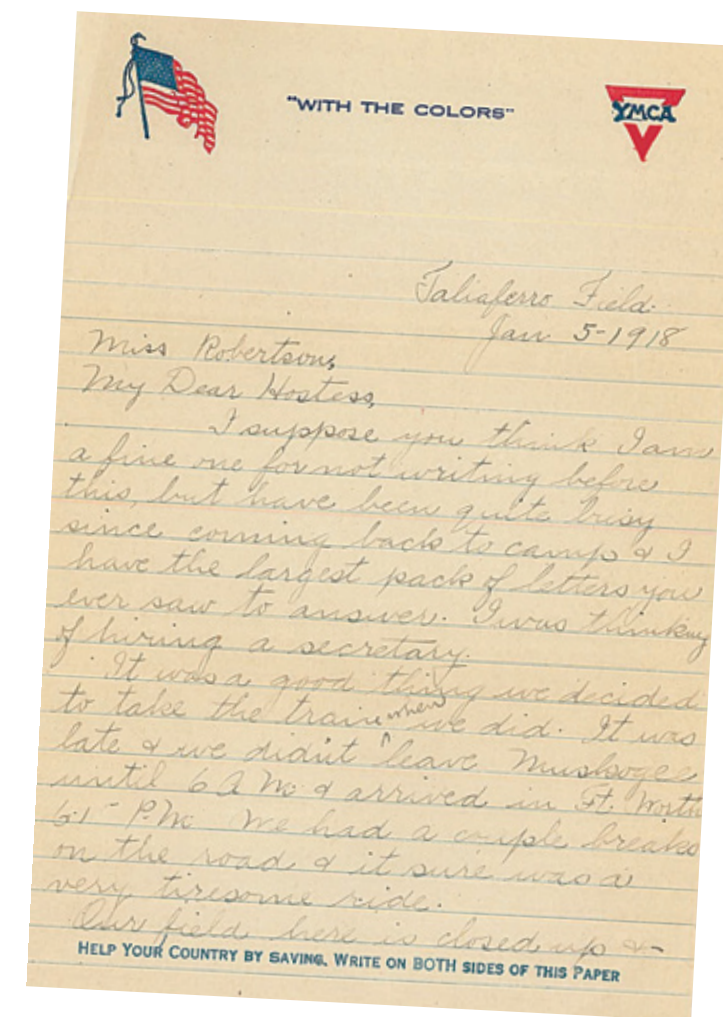 "WITH THE COLORS"
YMCA
Taliaferro Field.
Jan 5-1918
Miss Robertson,
My Dear Hostess,
I suppose you think I am
a fine one for not writing before
this, but have been quite busy
since coming back to camp & I
have the largest pack of letters you
ever saw to answer. I was thinking
of hiring a secretary.
It was a good thing we decided
to take the train when we did. It was
late & we didn't leave Muskogee
until 6 A M & arrived in Ft. Worth
P.M. We had a couple breaks
on the road & it sure was a
very tiresome ride.
Our field here is closed up &-
HELP YOUR COUNTRY BY SAVING. WRITE ON BOTH SIDES OF THIS PAPER